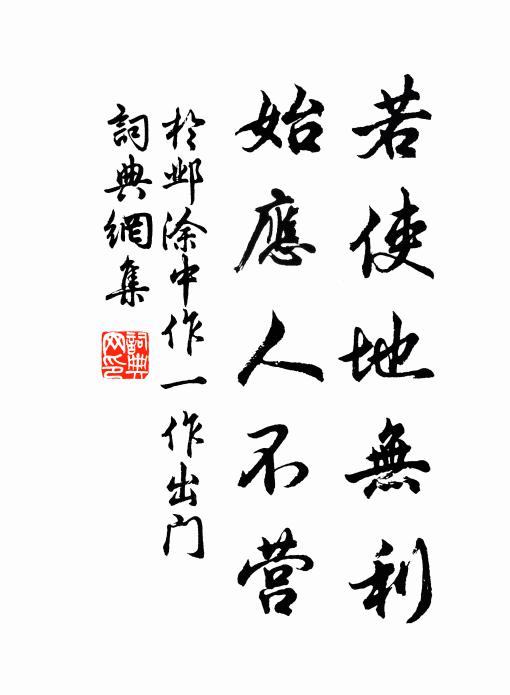 若使地無利
始應人不营
於邺涂中作一作出门
詞典網集
詞典網印